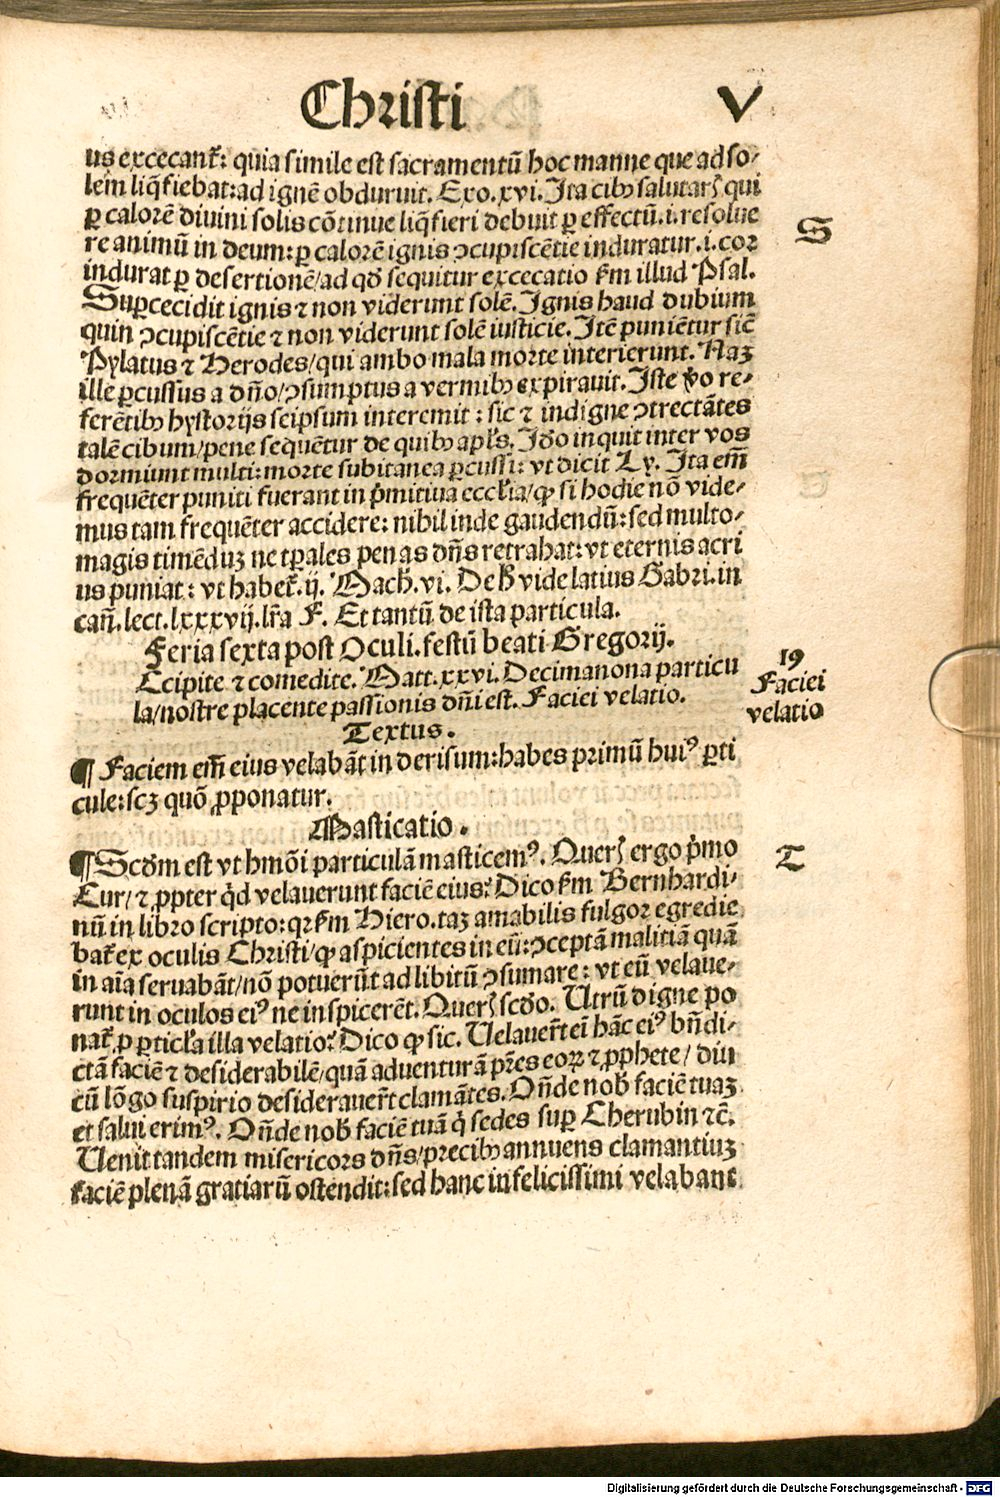 Christi V
us excecant᷑: quia simile est sacramentū hoc manne que ad so⸗
lem liq̄fiebat:ad ignē obduruit. Exo.xvi. Ita cibꝫ salutarꝭ qui
ꝑ calorē divini solis cōtinue liq̄fieri debuit ꝑ effectū.i.resolue
re animū in deum:ꝑ calorē ignis ꝯcupiscētie induratur.i.cor
indurat ꝑ desertionē/ad qd̄ sequitur excecatio ẜm illud Psal.
Suꝑcecidit ignis ⁊ non viderunt solē. Ignis haud dubium
quin ꝯcupiscētie ⁊ non viderunt solē iusticie. Itē puniētur sic̄
Pylatus ⁊ Herodes/qui ambo mala morte interierunt. Naꝫ
ille ꝑcussus a dn̄o/ꝯsumptus a vermibꝫ expirauit. Iste v̄o re⸗
ferētibꝫ hystorijs seipsum interemit: sic ⁊ indigne ꝯtrectātes
talē cibum/pene sequētur de quibꝫ apl̄s. Id̄o inquit inter vos
dormiunt multi:morte subitanea ꝑcussi: vt dicit Ly. Ita em̄
frequēter puniti fuerant in p̄mitiua eccl̄ia/ꝙ si hodie nō vide⸗
mus tam frequēter accidere: nihil inde gaudendū:sed multo⸗
magis timēduꝫ ne tꝑales penas dn̄s retrahat:vt eternis acri
us puniat: vt habet᷑.ij. Mach̄.vi. De h̄ vide latius Gabri.in
cañ.lect.lxxxvij.lr̄a F. Et tantū de ista particula.
Feria sexta post Oculi.festū beati Gregorij.
Ccipite ⁊ comedite. Matt.xxvi. Decimanona particu
la/nostre placente passionis dn̄i est. Faciei velatio.
Textus.
¶ Faciem em̄ eius velabāt in derisum:habes primū huiꝰ ꝑti
cule:scꝫ quō ꝓponatur.
Masticatio.
¶ Scd̄m est vt hmōi particulā masticemꝰ. Querꝭ ergo p̄mo
Cur/⁊ ꝓpter qd̄ velauerunt faciē eius? Dico ẜm Bernhardi⸗
nū in libro scripto:qꝛ ẜm Hiero.taꝫ amabilis fulgor egredie
bat᷑ ex oculis Christi/ꝙ aspicientes in eū:ꝯceptā malitiā quā
in aīa seruabāt/nō potuerūt ad libitū ꝯsumare: vt eū velaue⸗
runt in oculos eiꝰ ne inspicerēt. Querꝭ scd̄o. Utrū digne po
nat᷑ ꝓ ꝑticl̄a illa velatio? Dico ꝙ sic. Uelauer̄t ei hāc eiꝰ bn̄di⸗
ctā faciē ⁊ desiderabilē/quā adventurā pr̄es eoꝝ ⁊ ꝓphete/ diu
cū lōgo suspirio desiderauer̄t clamātes. Ōnde nob̄ faciē tuaꝫ
et salui erimꝰ. Ōnde nob̄ faciē tuā q̄ sedes suꝑ Cherubin ⁊c̄.
Uenit tandem misericors dn̄s/precibꝫ annuens clamantiuꝫ
faciē plenā gratiarū ostendit:sed hanc infelicissimi velabant
S
19
Faciei
velatio
T
Digitalisierung gefördert durch die Deutsche Forschungsgemeinschaft - DFG